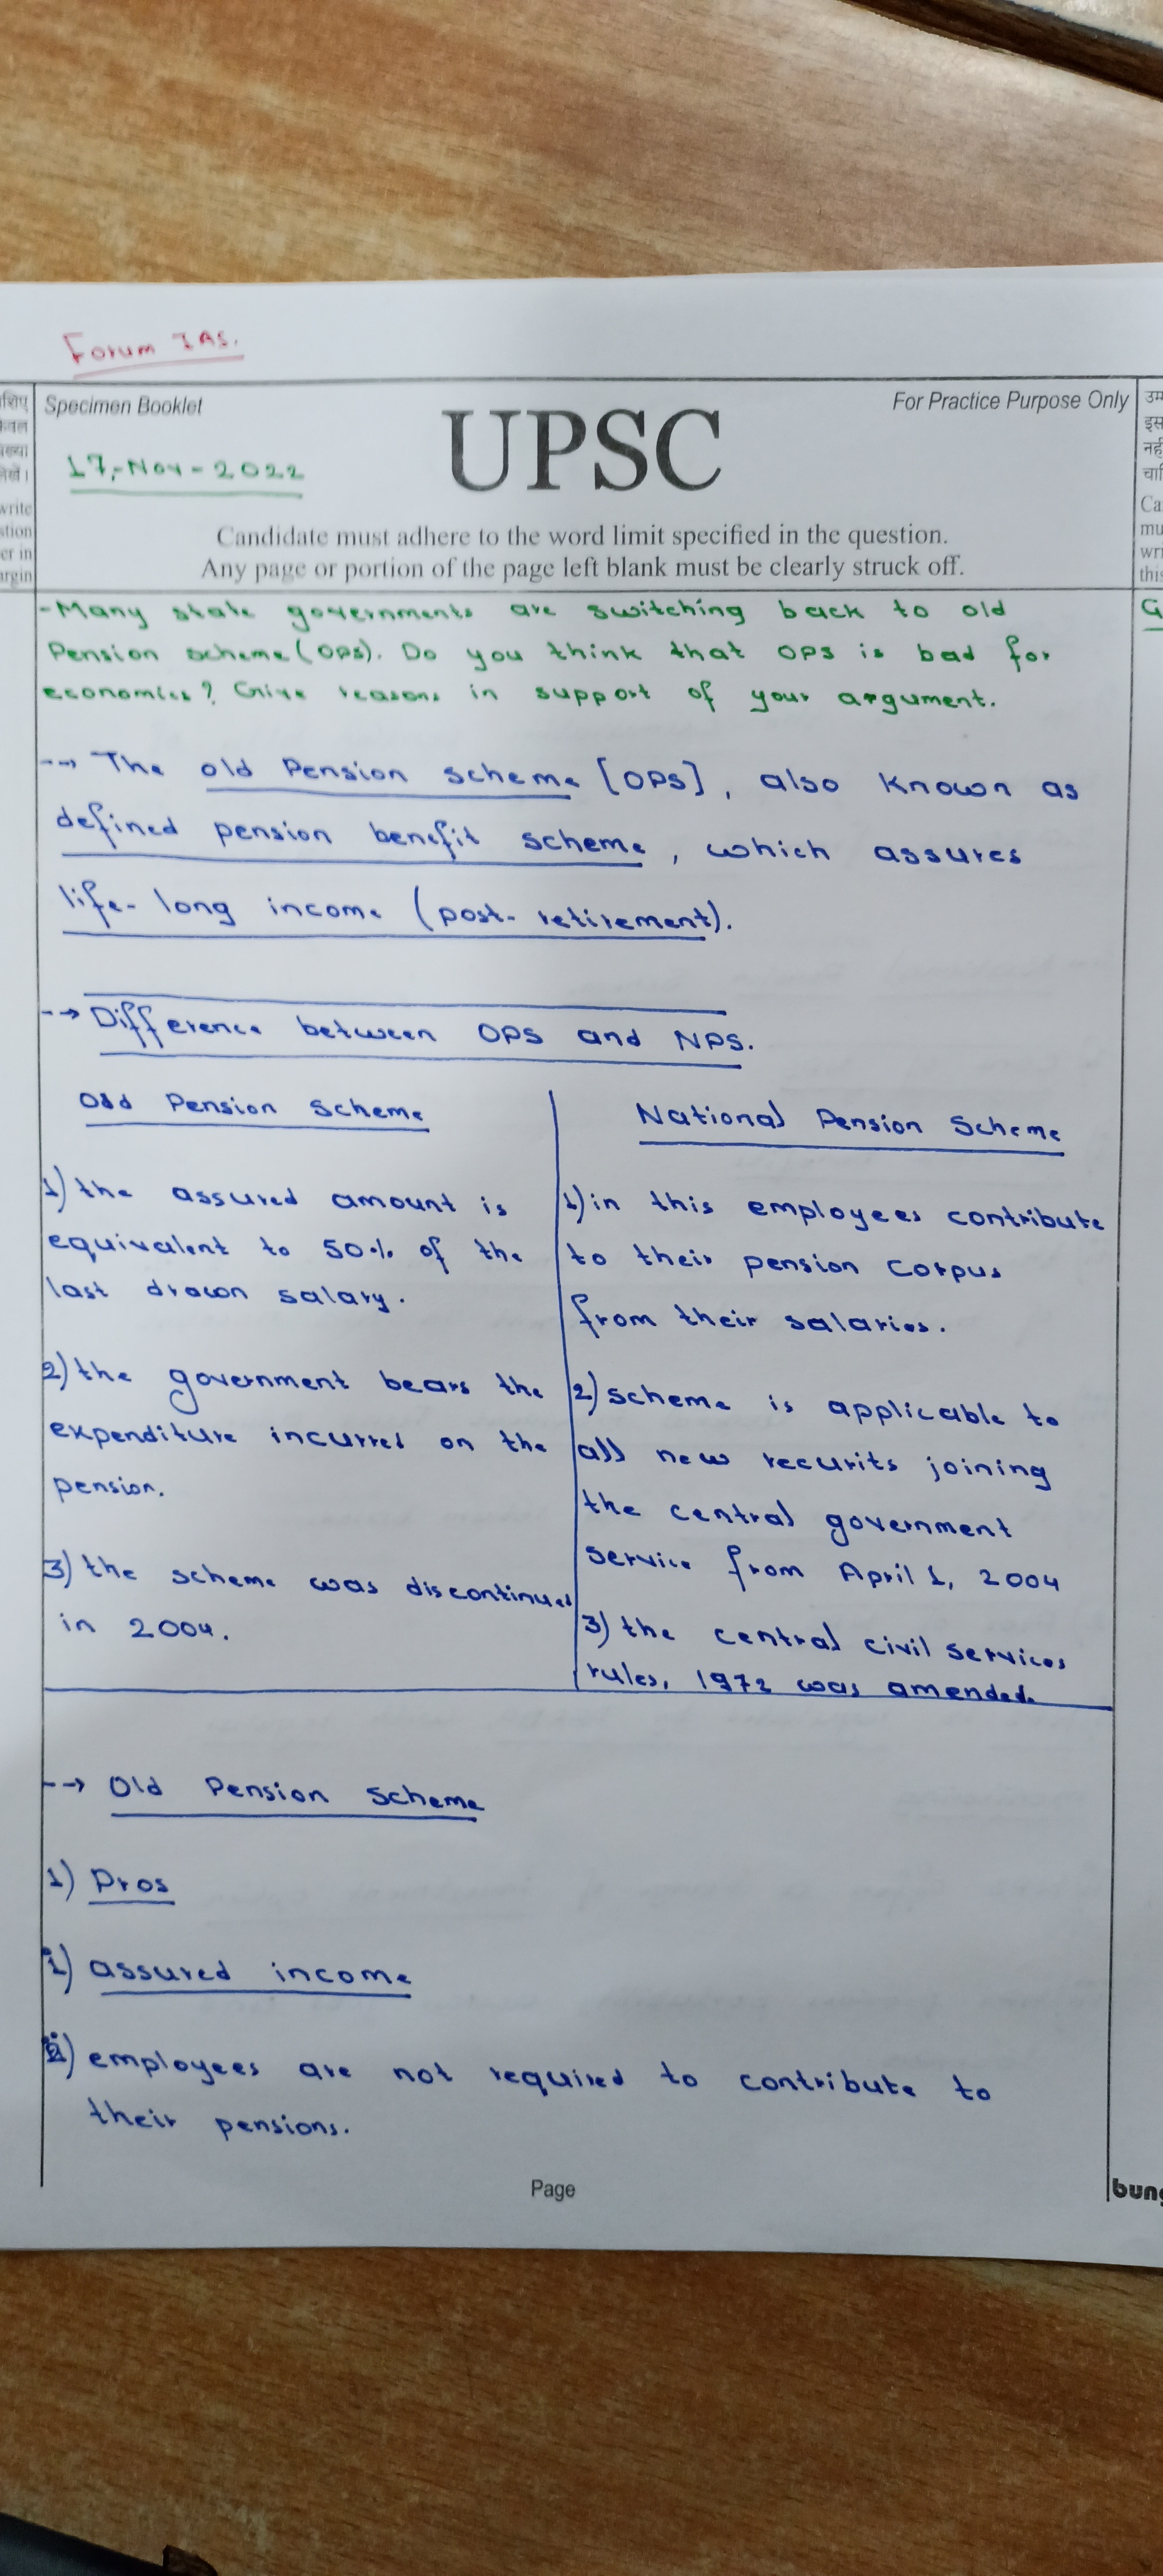 Forum IAS.
Specimen Booklet
For Practice Purpose Only
UPSC
17-Nov-2022
Candidate must adhere to the word limit specified in the question.
Any page or portion of the page left blank must be clearly struck off.
write
argin
-Many state governments are switching back to old
Pension scheme (OPS). Do you think that OPS is bad for
economics? Give reasons in support of your argument.
--> The old Pension scheme [OPS], also known as
defined pension benefit scheme, which assures
life-long income (post-retirement).
--> Difference between OPS and NPS.
Old Pension Scheme
1) the assured amount is
equivalent to 50% of the
last drawn salary.
2) the government bears the
expenditure incurred on the
pension.
3) the scheme was discontinued
in 2004.
National Pension Scheme
1) in this employees contribute
to their pension corpus
from their salaries.
2) scheme is applicable to
all new recurits joining
the central government
service from April 1, 2004
3) the central civil services
rules, 1972 was amended.
--> Old Pension Scheme
1) Pros
i) assured income
ii) employees are not required to contribute to
their pensions.
Page